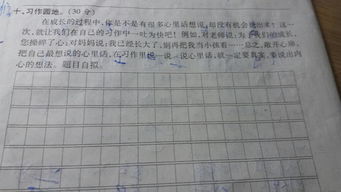 十、习作园地。(30分)
在成长的过程中,你是不是有很多心里话想说,却没有机会说出来?这一
次,就让我们在自己的习作中一吐为快吧!例如,对老师说:为了我们的成长,
您操碎了心;对妈妈说:我已经长大了,别再把我当小孩看……总之,敞开心扉,
把自己最想说的心里话,在习作里说一说。说心里话,就一定要真实,要说出内
心的想法。题目自拟。